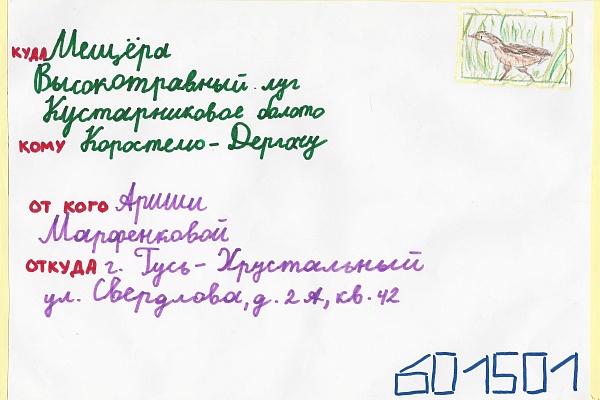 куда Мещёра
Высокотравный луг
Кустарниковое болото
кому Коростелю-Дергачу
от кого Ариши
Марфенковой
откуда г. Гусь-Хрустальный
ул. Свердлова, д. 2А, кв. 42
601501